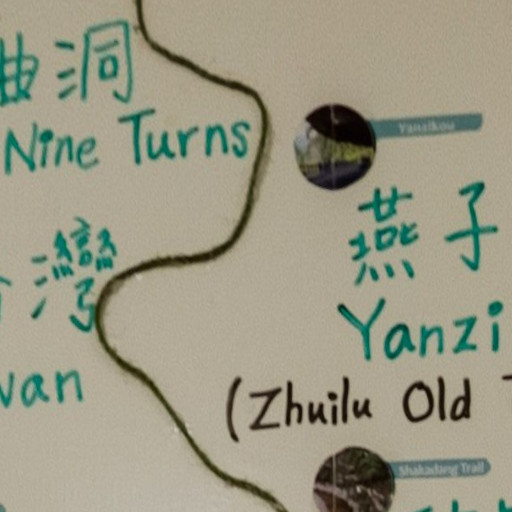 曲洞
Nine Turns
Yanzikou
燕子
Yanzi
灣
wan
(Zhuilu Old T
Shakadang Trail